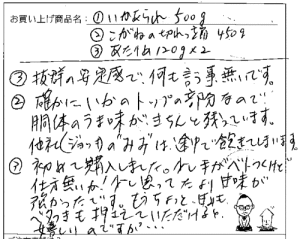 お買い上げ商品名: ①いかあられ 500g
②こがねの切れっ端 450g
③あたりめ120g×2
③ 抜群の安定感で、何も言う事無いです。
② 確かにいかのトップの部分なので
胴体のうま味がきちんと残っています。
他社(ジョッキ)のみみずは、途中で飽きてしまいます。
① 初めて購入しました。少し手がベトつくけど
仕方無いか!少し思ってたより甘味が
強かったです。もうちょっと、甘みも
ベタつきも押さえていただけると、
嬉しいのですが・・・